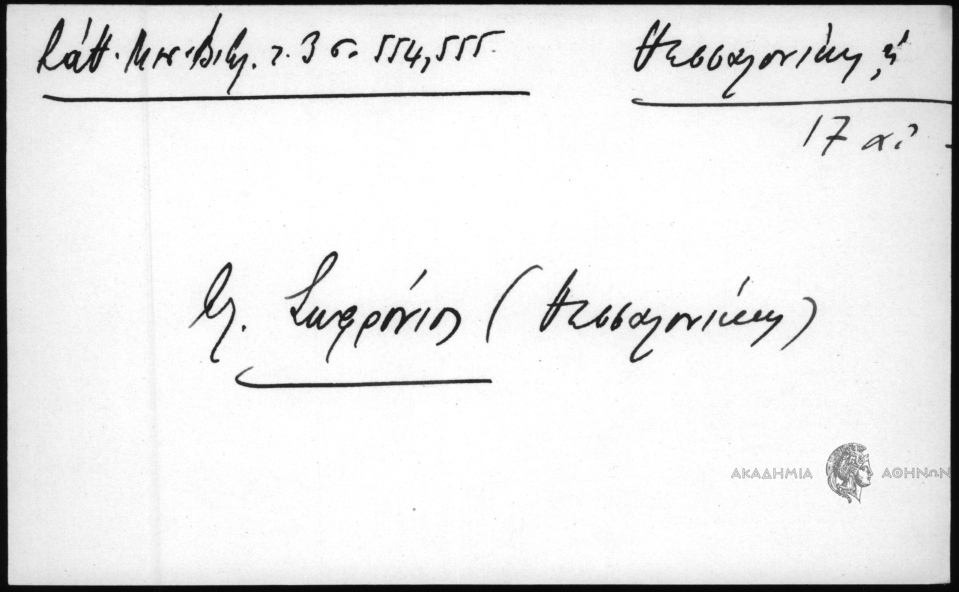 Σάθ. Μεσ. Βιβ. τ. 3 σ. 554, 555.
Θεσσαλονίκη
17 αι
Σωφρόνιος (Θεσσαλονίκης)
ΑΚΑΔΗΜΙΑ ΑΘΗΝΩΝ